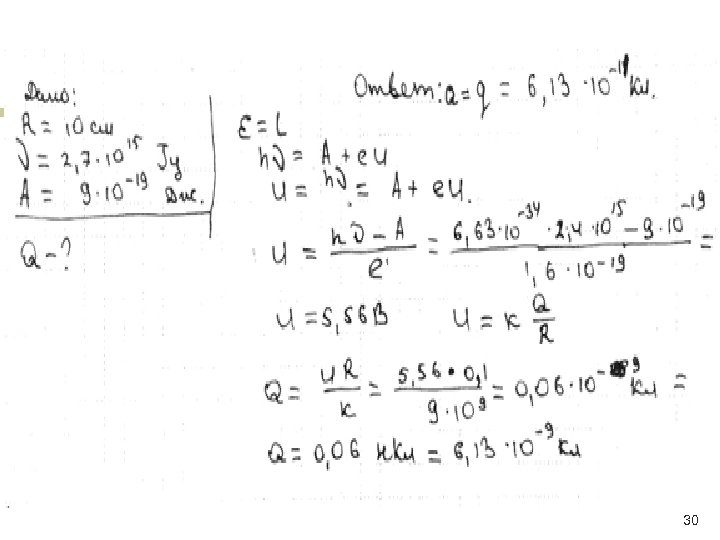 Дано:
R = 10 см
ν = 2,7·10¹⁵ Гц
A = 9·10⁻¹⁹ Дж.
Q - ?
Ответ: Q = q = 6,13·10⁻¹¹ Кл.
ε = L
hν = A + eU
U = hν = A + eU.
U = (hν - A)/e = (6,63·10⁻³⁴ · 2,4·10¹⁵ - 9·10⁻¹⁹)/(1,6·10⁻¹⁹) =
U = 5,56 В U = к Q/R
Q = UR/к = (5,56 · 0,1)/(9·10⁹) = 0,06·10⁻⁹ Кл =
Q = 0,06 нКл = 6,13·10⁻⁹ Кл
30